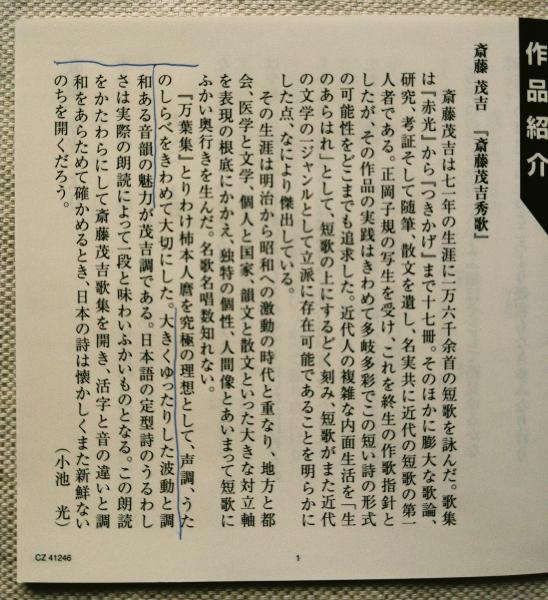 作品紹介
斎藤 茂吉 『斎藤茂吉秀歌』
斎藤茂吉は七一年の生涯に一万六千余首の短歌を詠んだ。歌集
は『赤光』から『つきかげ』まで十七冊。そのほかに膨大な歌論、
研究、考証そして随筆、散文を遺し、名実共に近代の短歌の第一
人者である。正岡子規の写生を受け、これを終生の作歌指針と
したが、その作品の実践はきわめて多岐多彩でこの短い詩の形式
の可能性をどこまでも追求した。近代人の複雑な内面生活を「生
のあらはれ」として、短歌の上にするどく刻み、短歌がまた近代
の文学の一ジャンルとして立派に存在可能であることを明らかに
した点、なにより傑出している。
その生涯は明治から昭和への激動の時代と重なり、地方と都
会、医学と文学、個人と国家、韻文と散文といった大きな対立軸
を表現の根底にかかえ、独特の個性、人間像とあいまって短歌に
ふかい奥行きを生んだ。名歌名唱数知れない。
『万葉集』とりわけ柿本人麿を究極の理想として、声調、うた
のしらべをきわめて大切にした。大きくゆったりした波動と調
和ある音韻の魅力が茂吉調である。日本語の定型詩のうるわし
さは実際の朗読によって一段と味わいふかいものとなる。この朗読
をかたわらにして斎藤茂吉歌集を開き、活字と音の違いと調
和をあらためて確かめるとき、日本の詩は懐かしくまた新鮮ない
のちを開くだろう。
(小池 光)
CZ 41246
1